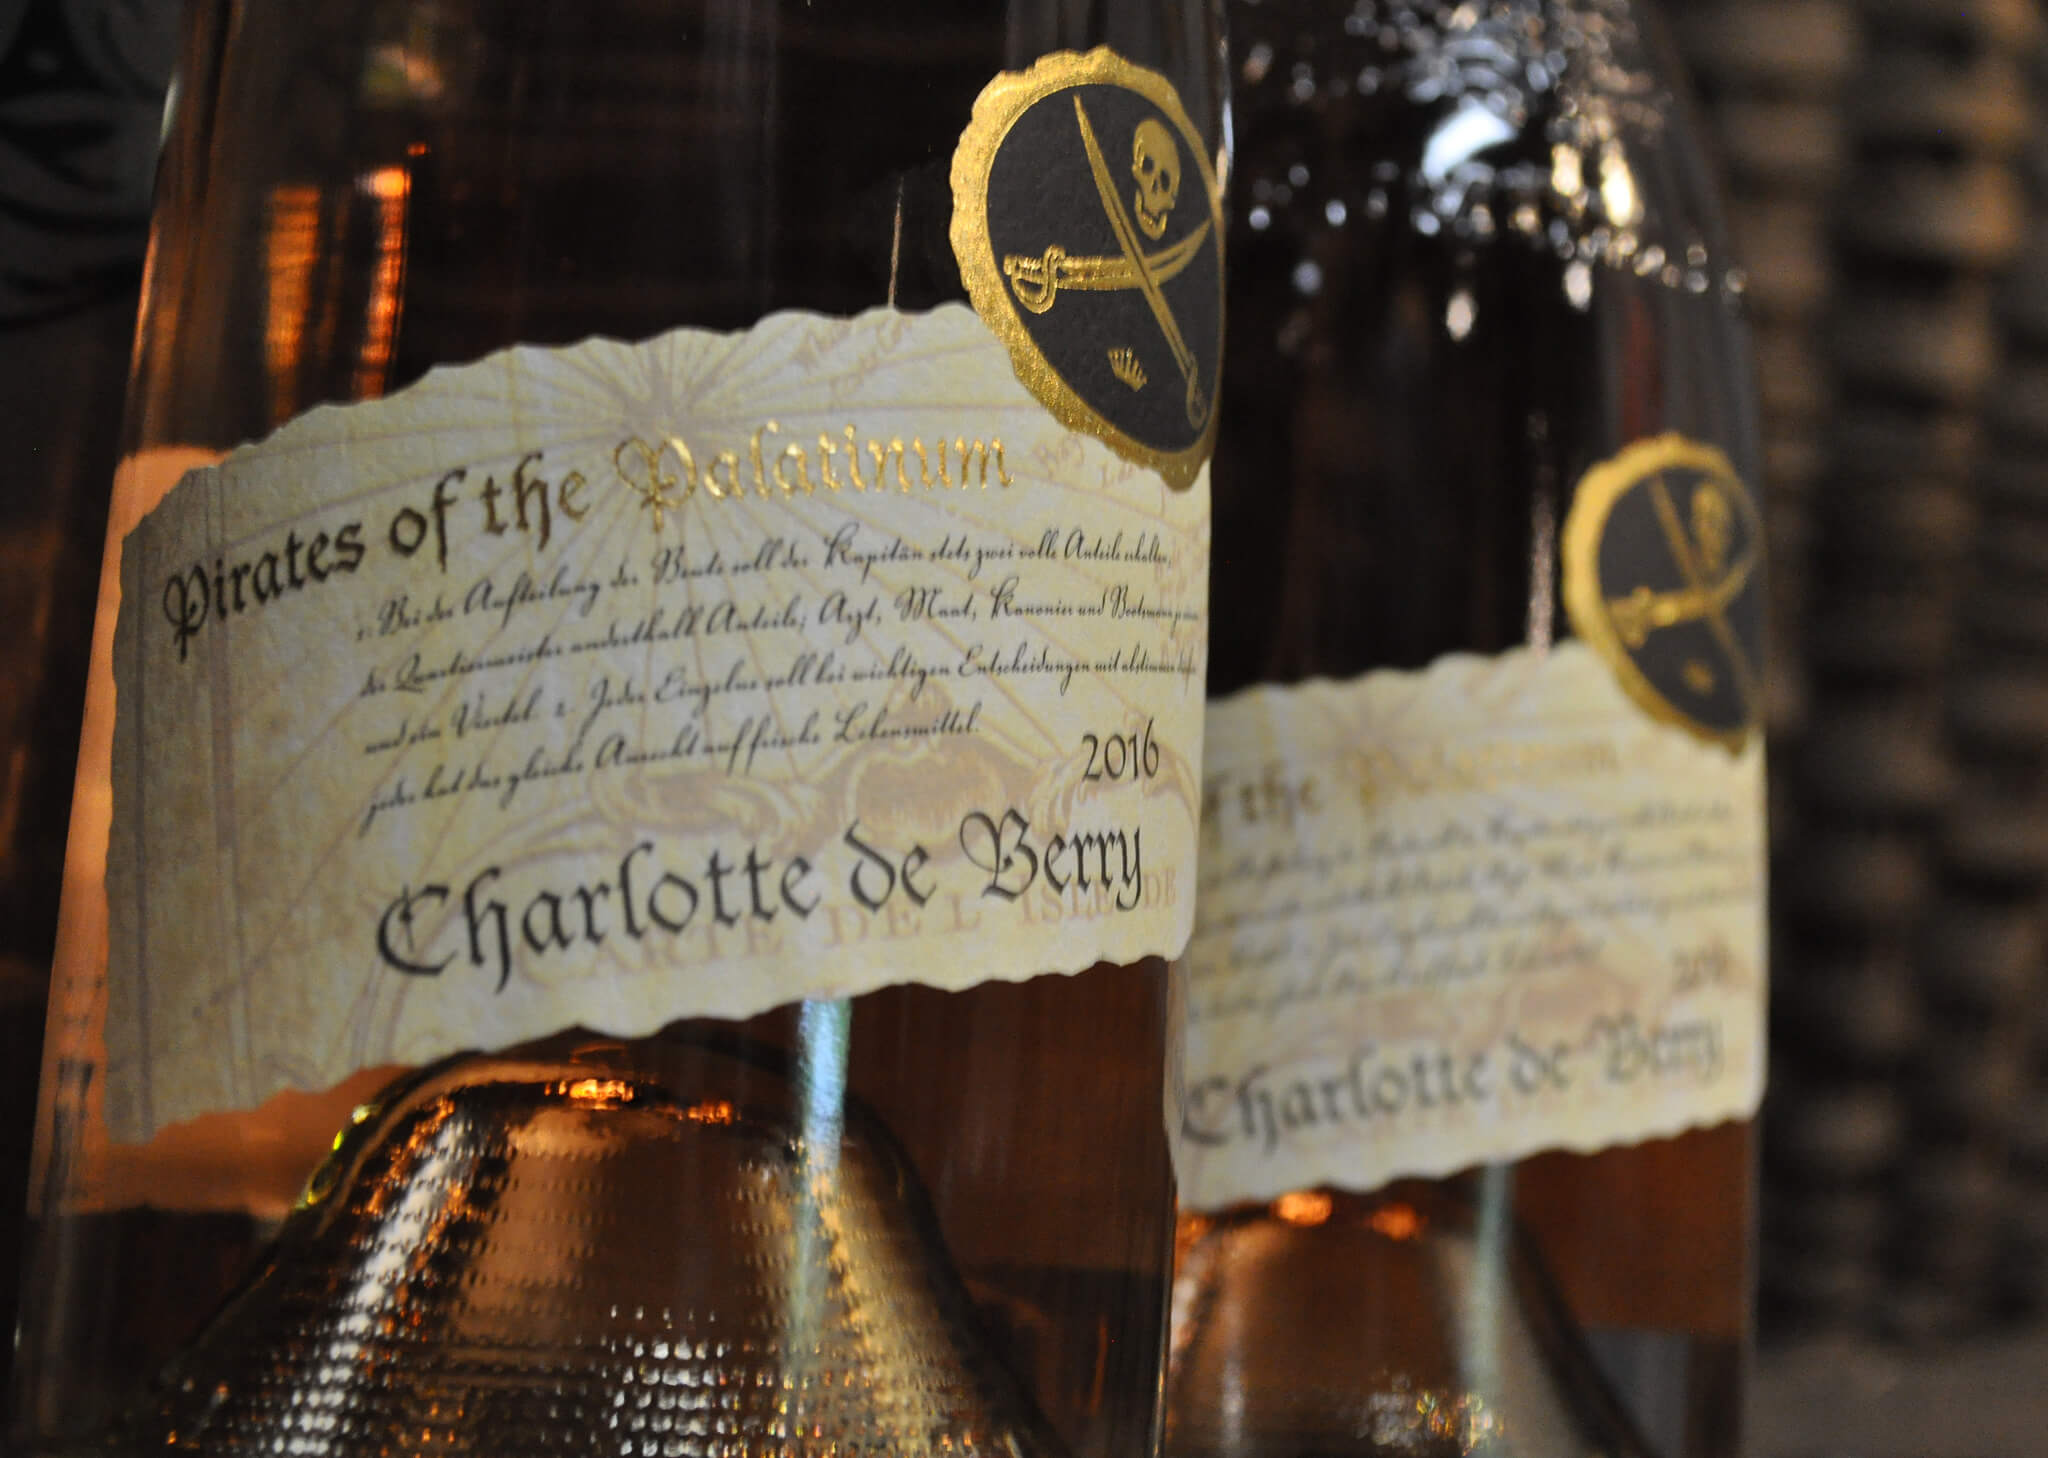 Pirates of the Palatinum
1. Bei der Aufteilung der Beute soll der Kapitän stets zwei volle Anteile erhalten,
der Quartiermeister anderthalb Anteile; Arzt, Maat, Kanonier und Bootsmann
und ein Viertel. 2. Jeder Einzelne soll bei wichtigen Entscheidungen mit abstimmen
jeder hat das gleiche Anrecht auf frische Lebensmittel.
2016
Charlotte de Berry
CARTE DE L'ISLE DE
f the Palatinum
2016
Charlotte de Berry